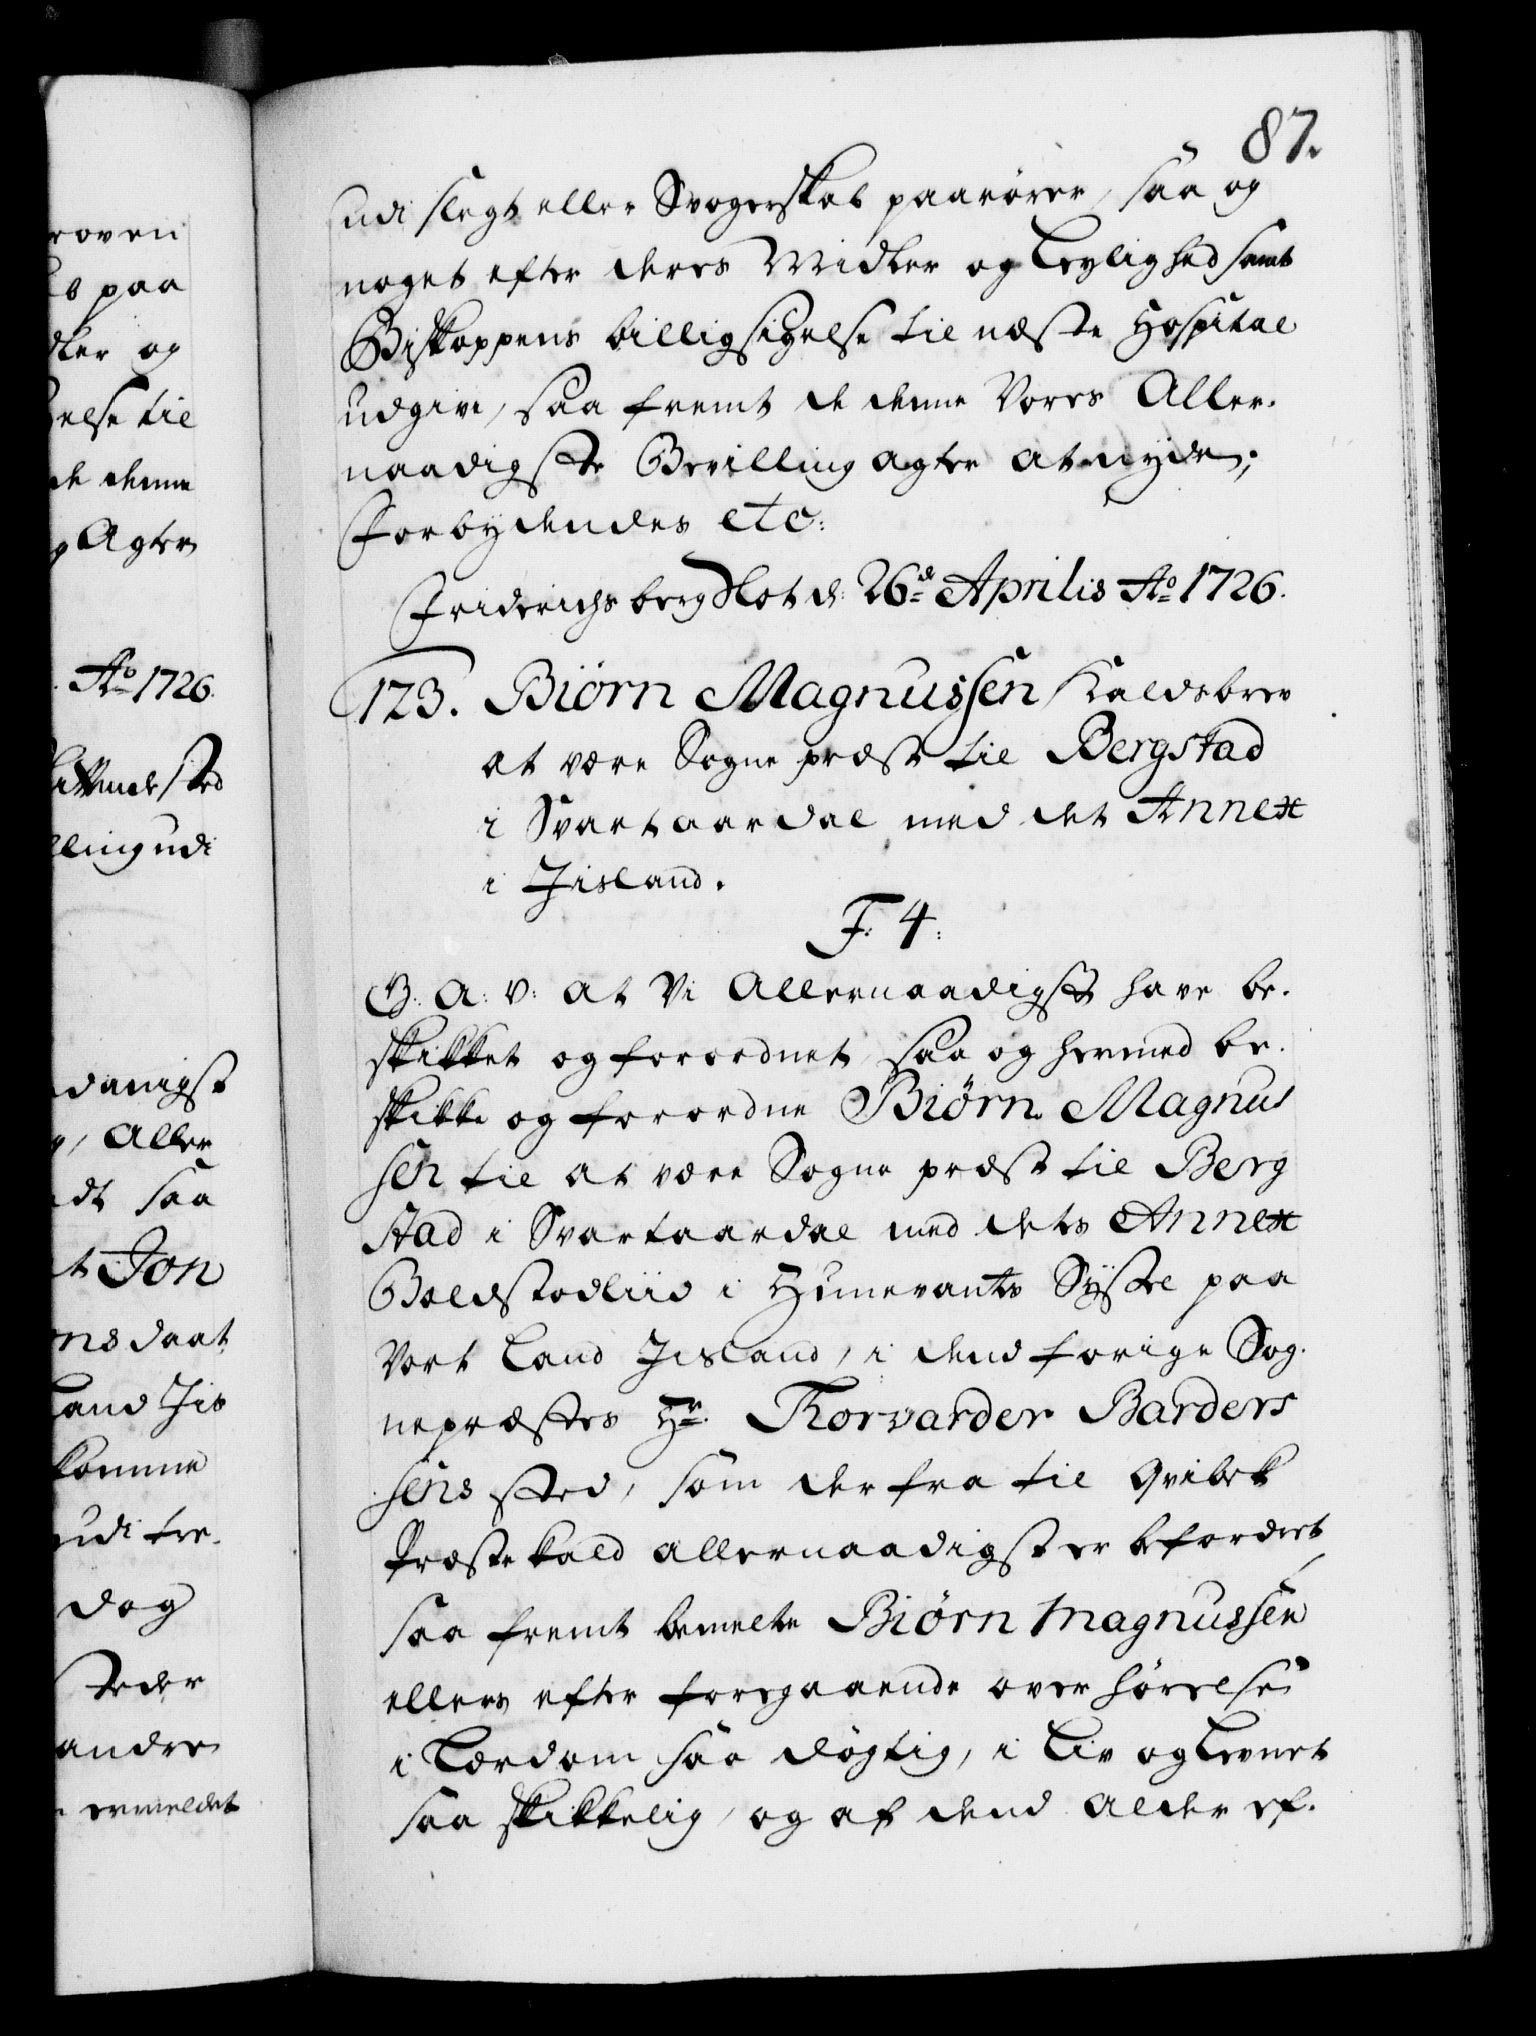 87.
udi slegt eller Svogerskab paarörer, saa og
noget efter deres Midler og Leylighed samt
Biskoppens billigsigelse til næste Hospital
udgive, saa fremt de denne Vores Aller-
naadigste Bevilling agter at nyde;
Forbydendes etc:
Friderichsberg Slot d: 26d Aprilis Ao 1726.
123. Biörn Magnussen Kaldsbrev
at være Sogne præst til Bergstad
i Svartaardal med det Annex
i Jisland.
F: 4:
G: A: V: at Vi Allernaadigst have be-
skikket og forordnet, saa og hermed be-
skikke og forordne Biörn Magnus
sen til at være Sogne præst til Berg
stad i Svartaardal med dets Annex
Boldstadliid i Hunevants Syssel paa
Vort Land Jisland, i dend forige Sog-
nepræstes Hr. Thorvarder Barders
sens sted, som der fra til Qvibek
Præste kald allernaadigst er befordret,
saa fremt bemelte Biörn Magnussen
ellers efter foregaaende overhörelse
i Lærdom saa dögtig, i Liv og Levnet
saa skikkelig, og af dend Alder ef-
roven
b paa
dler og
gelse til
de denne
g Agter
Ao 1726.
sted
lling udi
danigst
Aller
dt saa
t Jon
ns daat
Land Jis
komme
udi tre-
dog
steder
andre
ermeldet